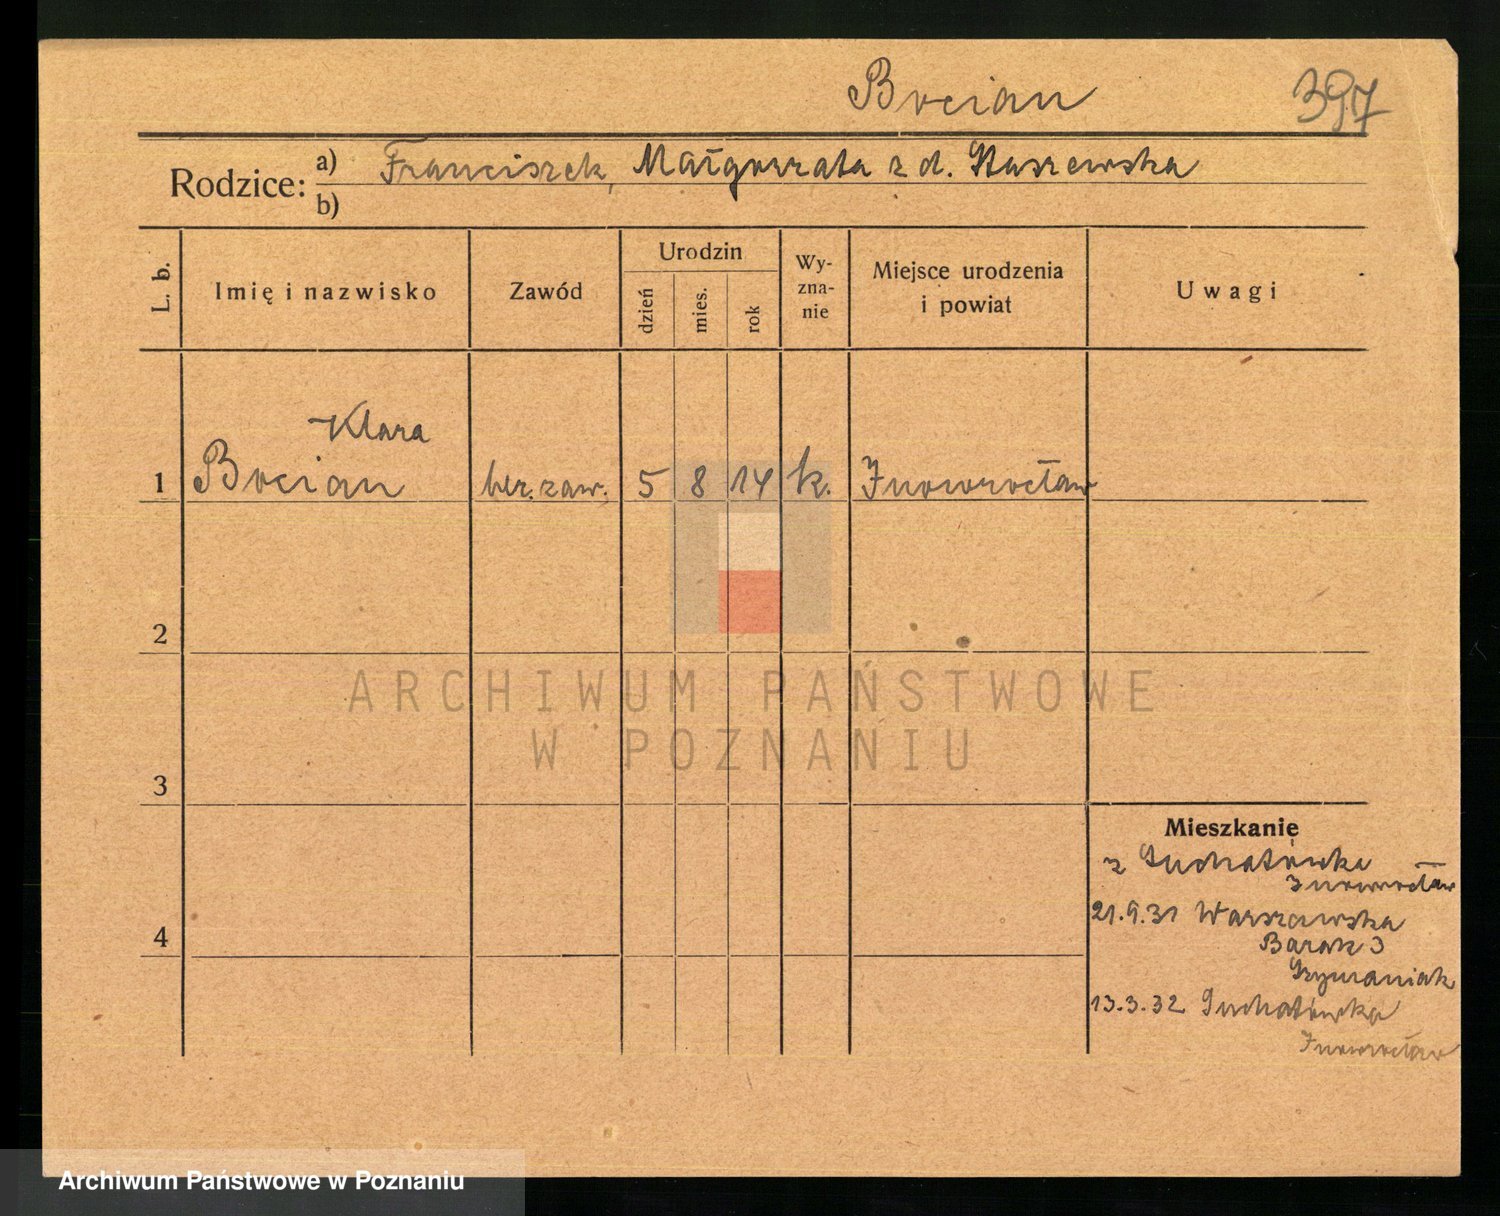 Bocian 397
Rodzice: a) Franciszek, Małgorzata z d. Staszewska
b)
L. b. Imię i nazwisko Zawód Urodzin dzień mies. rok Wyznanie Miejsce urodzenia i powiat Uwagi
Klara
1 Bocian bez. zaw. 5 8 14 k. Inowrocław
2
ARCHIWUM PAŃSTWOWE
W POZNANIU
3
Mieszkanie
z Suchatówka
Inowrocław
21.9.31 Warszawska
Barak 3
4
Szymaniak
13.3.32 Suchatówka
Inowrocław
Archiwum Państwowe w Poznaniu